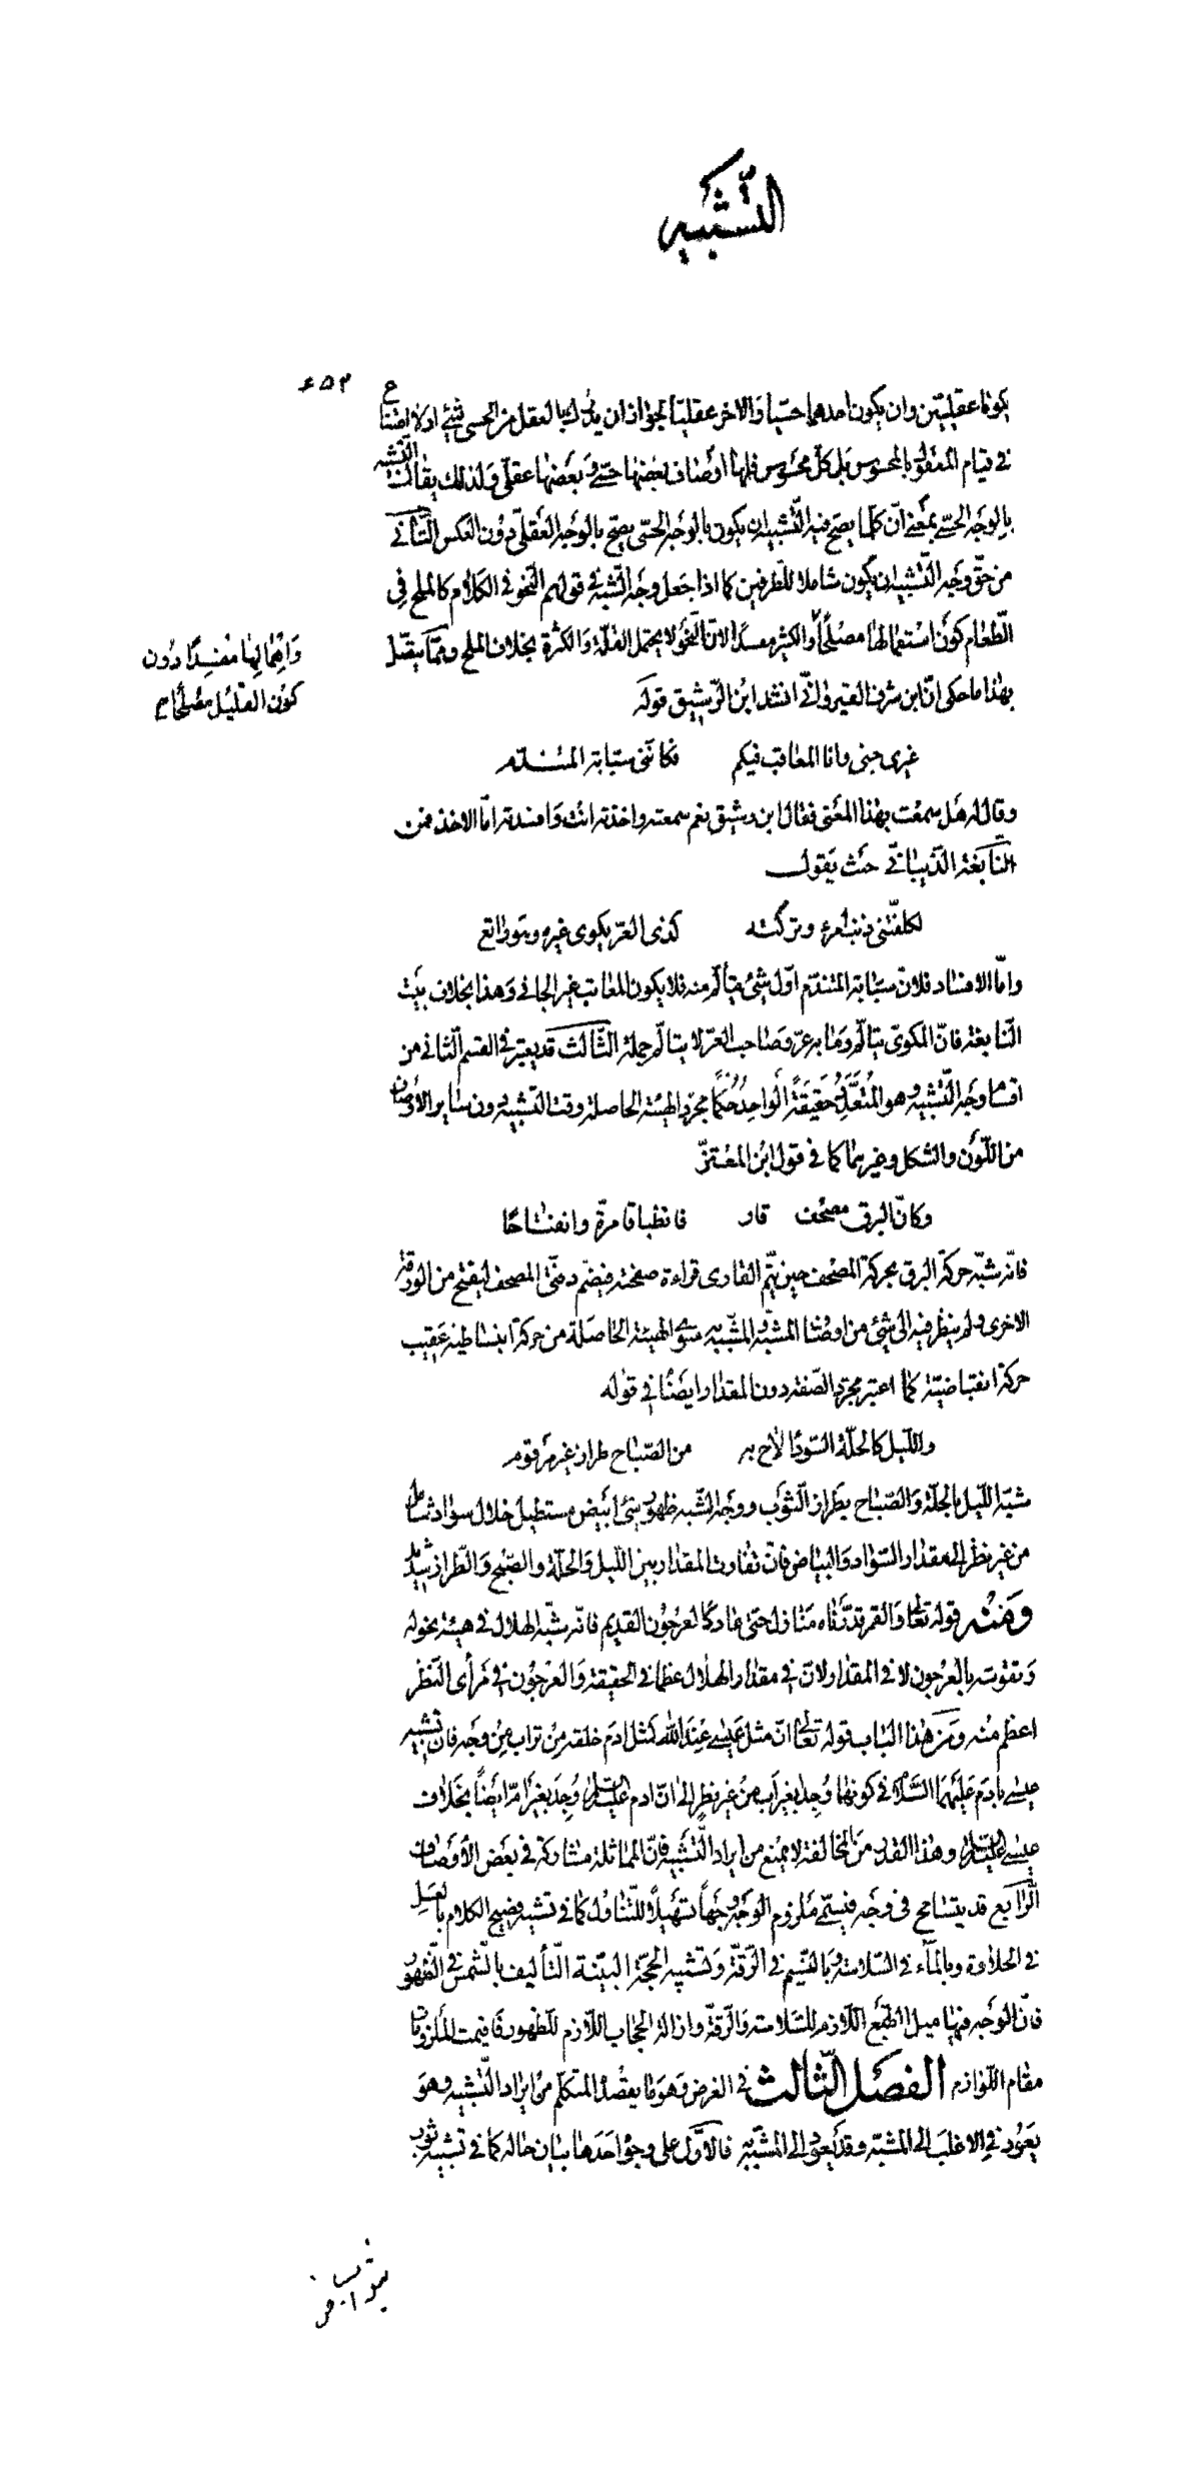 التشبيه
ع ٢٥٤
يكونا عقليين وان يكون احدهما حسيا والاخر عقليا لجواز ان يدرك بالعقل من الحسى شئ اذ لا امتناع
فى قيام المعقول بالمحسوس بل كل محسوس فلها اوصاف بعضها حسى وبعضها عقلى ولذلك يقال التشبيه
بالوجه الحسى بمعنى ان كلما يصح فيه التشبيه ان يكون بالوجه الحسى يصح بالوجه العقلى دون العكس الثانى
من حق وجه التشبيه ان يكون شاملا للطرفين كما اذا جعل وجه الشبه فى قولهم النحو فى الكلام كالملح فى
الطعام كون استعمالها مصلحا والكثير مفسدا لان النحو لا يحتمل القلة والكثرة بخلاف الملح ومما يتصل
واهمالهما مفسدا دون
كون القليل مصلحا م
بهذا ما حكى ان ابن شرف القيروانى انشد ابن الرشيق قوله
غيرى جنى وانا المعاقب فيكم فكاننى سبابة المتندم
وقال له هل سمعت بهذا المعنى فقال ابن رشيق نعم سمعته واخذته انت وافسدته اما الاخذ فمن
النابغة الذبيانى حيث يقول
لكلفتنى ذنب امرء وتركته كذى العر يكوى غيره وهو راتع
واما الافساد فلان سبابة المتندم اول شئ يتألم منه فلا يكون المعاقب غير الجانى وهذا بخلاف بيت
النابغة فان المكوى يتألم وما به عر وصاحب العر لا يتألم جملة الثالث قد يعتبر فى القسم الثانى من
اقسام وجه التشبيه وهو المتعدد حقيقة الواحد حكما مجرد الهيئة الحاصلة وقت التشبيه دون سائر الاوصاف
من اللون والشكل وغيرهما كما فى قول ابن المعتز
وكان البرق مصحف قار فانطباقا مرة وانفتاحا
فانه شبه حركة البرق بحركة المصحف حين يتم القارى قراءة صفحته فيضم دفتى المصحف ليفتح من الورقة
الاخرى ولم ينظر فيه الى شئ من اوصاف المشبه والمشبه به سوى الهيئة الحاصلة من حركة انبساطية عقيب
حركة انقباضية كما اعتبر مجرد الصفة دون المقدار ايضا فى قوله
والليل كالحلة السوداء لاح به من الصباح طراز غير مرقوم
شبه الليل بالحلة والصباح بطراز الثوب ووجه الشبه ظهور شئ ابيض مستطيل خلال سواد شامل
من غير نظر الى مقدار السواد والبياض فان تفاوت المقدار بين الليل والحلة والصبح والطراز شديد
ومنه قوله تعالى والقمر قدرناه منازل حتى عاد كالعرجون القديم فانه شبه الهلال فى هيئة نحوله
وتقوسه بالعرجون لا فى المقدار ولان فى مقدار الهلال عظما فى الحقيقة والعرجون فى مرأى النظر
اعظم منه ومن هذا الباب قوله تعالى ان مثل عيسى عند الله كمثل ادم خلقه من تراب من وجه فان تشبيه
عيسى بادم عليهما السلام فى كونهما وجدا بغير اب من غير نظر الى ان ادم عليه السلام وجد بغير ام ايضا بخلاف
عيسى عليه السلام وهذا القدر من المخالفة لا يمنع من ايراد التشبيه فان المماثلة مشاركة فى بعض الاوصاف
الرابع قد يتسامح فى وجه فيسمى ملزوم الوجه وجها تسهيلا للتناول كما فى تشبيه فصيح الكلام بالعسل
فى الحلاوة وبالماء فى السلاسة وبالنسيم فى الرقة وتشبيه الحجة البينة التأليف بالشمس فى الظهور
فان الوجه فيها ميل الطبع اللازم للسلاسة والرقة وازالة الحجاب اللازم للظهور فاقيمت الملزومات
مقام اللوازم الفصل الثالث فى الغرض وهو ما يقصده المتكلم من ايراد التشبيه وهو
يعود فى الاغلب الى المشبه وقد يعود الى المشبه به فالاول على وجوه احدها بيان حاله كما فى تشبيه ثوب